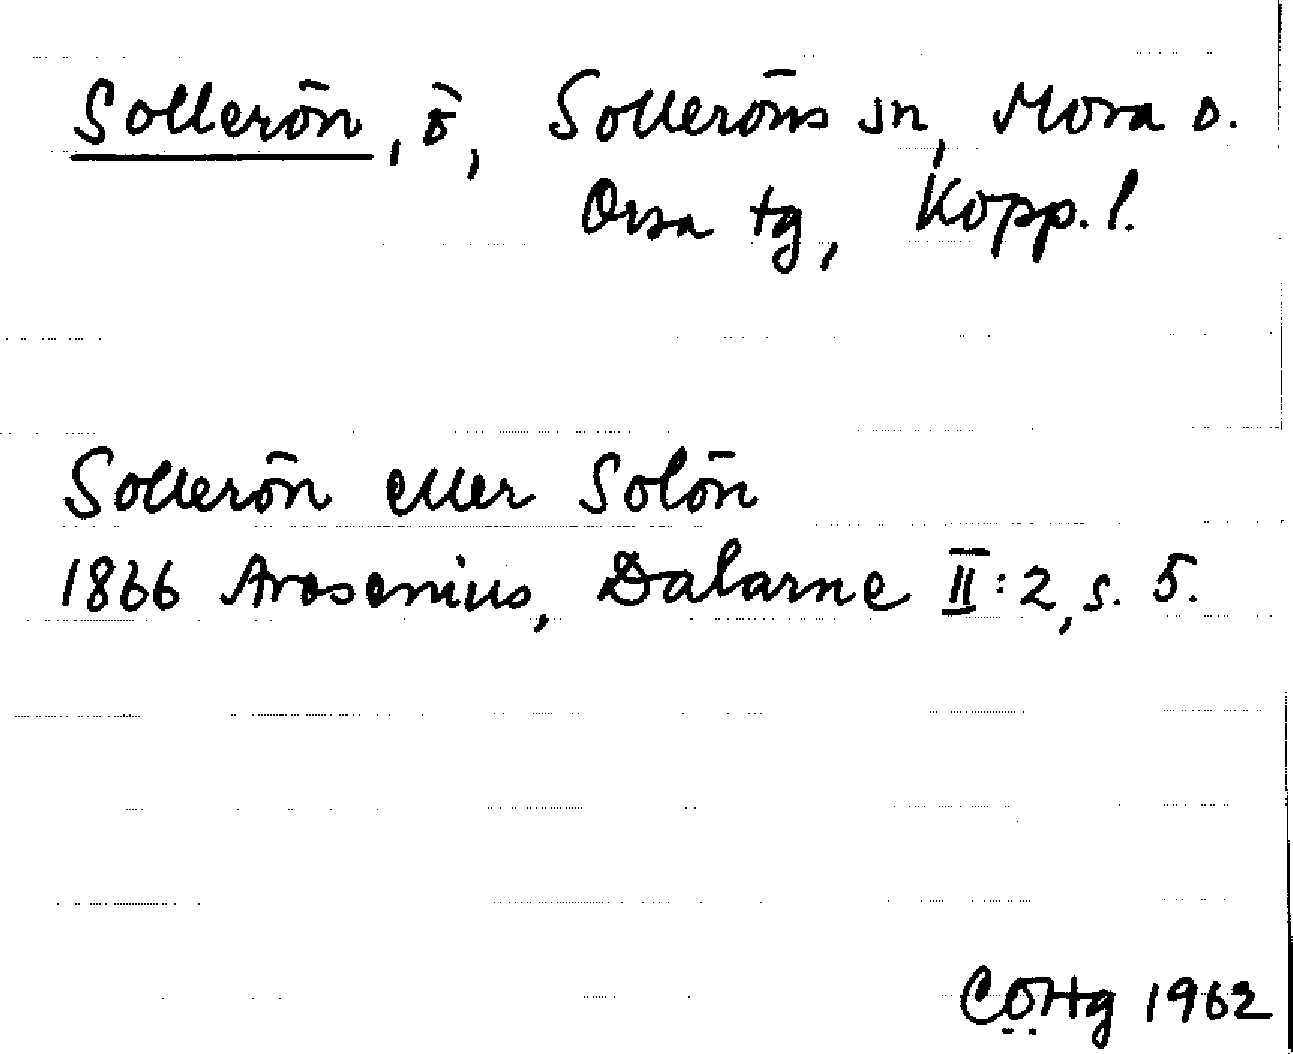 Sollerön, ö, Solleröns sn, Mora o.
Orsa tg, Kopp. l.
Sollerön eller Solön
1866 Arosenius, Dalarne II:2, s. 5.
CÖHg 1962